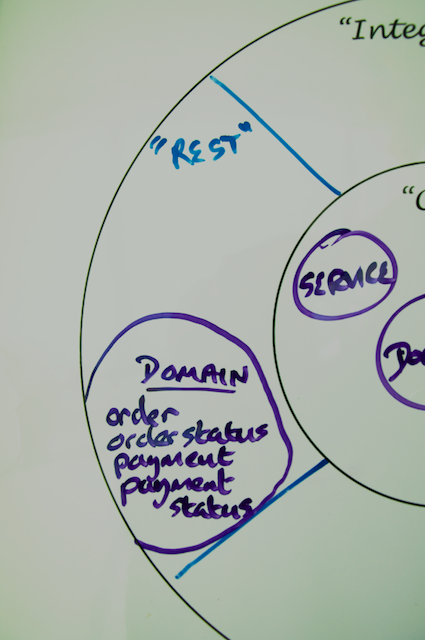 "Integ
"REST"
"C
SERVICE
Do
DOMAIN
order
order status
payment
payment
status